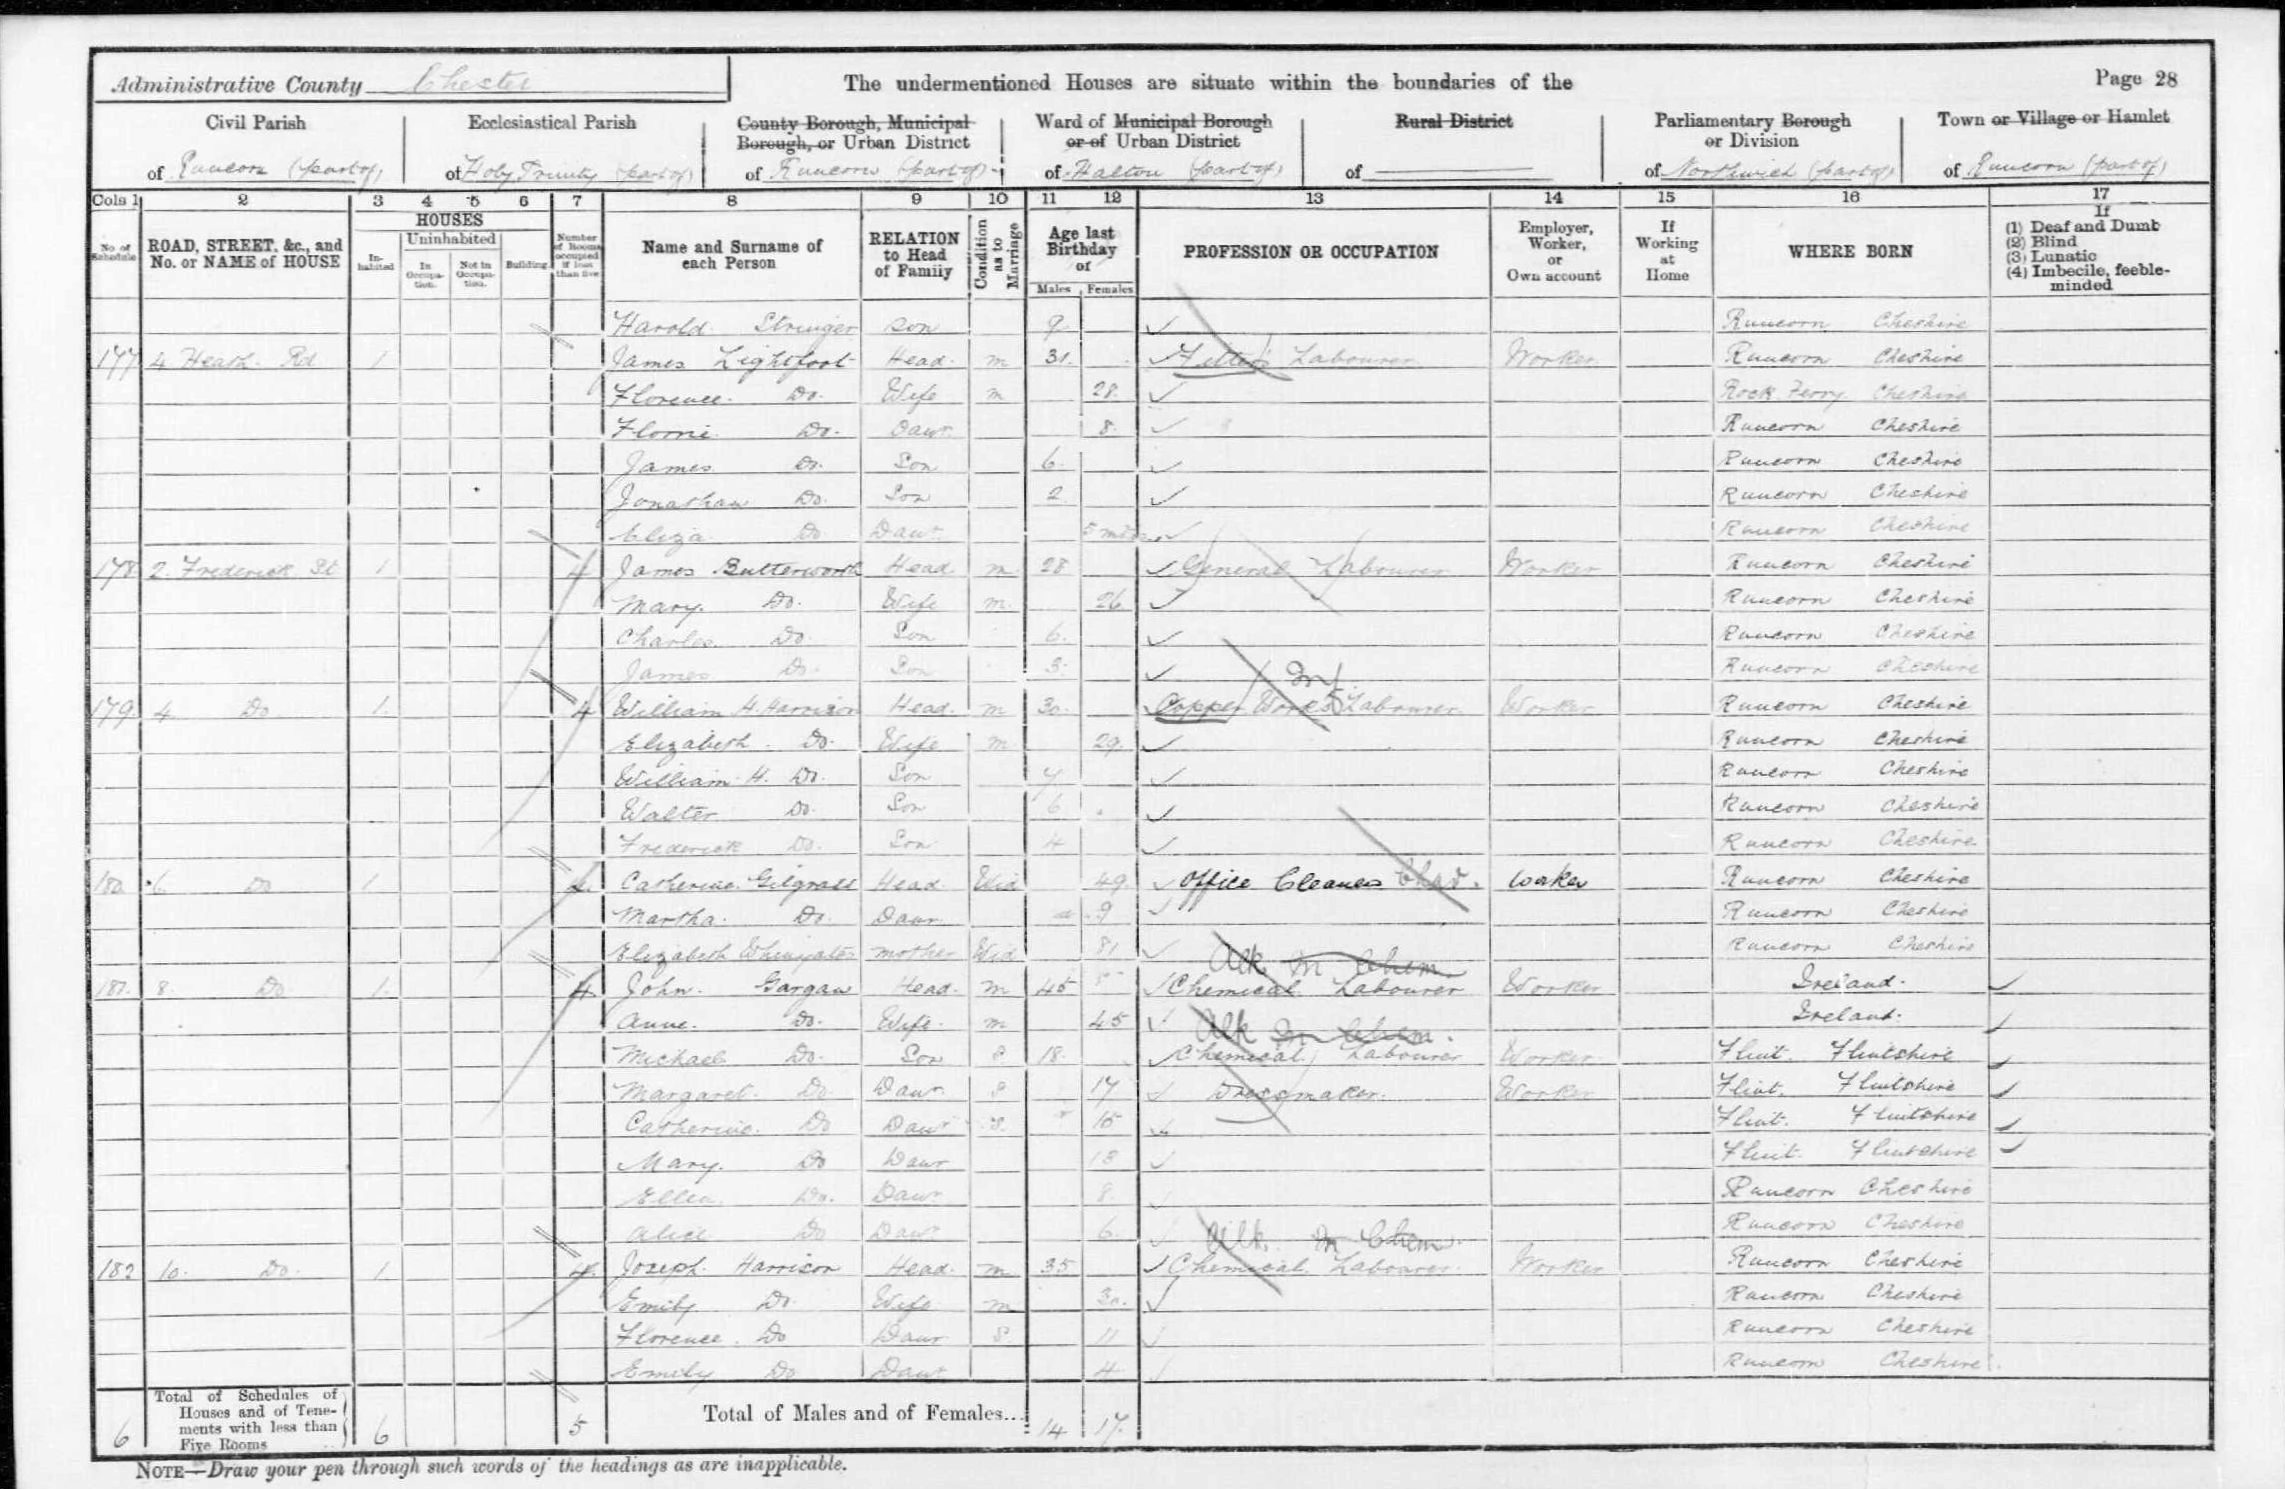 Administrative County Chester
The undermentioned Houses are situate within the boundaries of the
Page 28
Civil Parish
of Runcorn (part of)
Ecclesiastical Parish
of Holy Trinity (part of)
County Borough, Municipal Borough, or Urban District
of Runcorn (part of)
Ward of Municipal Borough or of Urban District
of Halton (part of)
Rural District
of
Parliamentary Borough or Division
of Northwich (part of)
Town or Village or Hamlet
of Runcorn (part of)
Cols 1 2 3 4 5 6 7 8 9 10 11 12 13 14 15 16 17
No of Schedule
ROAD, STREET, &c., and No. or NAME of HOUSE
HOUSES
Inhabited
Uninhabited
In Occupation.
Not in Occupation.
Building
Number of Rooms occupied if less than five
Name and Surname of each Person
RELATION to Head of Family
Condition as to Marriage
Age last Birthday of
Males Females
PROFESSION OR OCCUPATION
Employer, Worker, or Own account
If Working at Home
WHERE BORN
If
(1) Deaf and Dumb
(2) Blind
(3) Lunatic
(4) Imbecile, feeble-minded
Harold Stringer Son 9 Runcorn Cheshire
177 4 Heath Rd 1 James Lightfoot Head m 31 Fitter's Labourer Worker Runcorn Cheshire
Florence Do Wife m 28 Rock Ferry Cheshire
Florrie Do Dawr 8 Runcorn Cheshire
James Do Son 6 Runcorn Cheshire
Jonathan Do Son 2 Runcorn Cheshire
Eliza Do Dawr 5 mths Runcorn Cheshire
178 2 Frederick St 1 4 James Butterworth Head m 28 General Labourer Worker Runcorn Cheshire
Mary Do Wife m 26 Runcorn Cheshire
Charles Do Son 6 Runcorn Cheshire
James Do Son 3 Runcorn Cheshire
179 4 Do 1 4 William H. Harrison Head m 30 Copper Works Labourer Worker Runcorn Cheshire
Elizabeth Do Wife m 29 Runcorn Cheshire
William H. Do Son 7 Runcorn Cheshire
Walter Do Son 6 Runcorn Cheshire
Frederick Do Son 4 Runcorn Cheshire
180 6 Do 1 Catherine Gilgrass Head Wid 49 Office Cleaner Char. Worker Runcorn Cheshire
Martha Do Dawr 9 Runcorn Cheshire
Elizabeth mother Wid 81 Runcorn Cheshire
Alk m Chem
181 8 Do 1 4 John Gargan Head m 45 Chemical Labourer Worker Ireland
Anne Do Wife m 45 Ireland
Alk m Chem.
Michael Do Son S 18 Chemical Labourer Worker Flint Flintshire
Margaret Do Dawr S 17 Dressmaker Worker Flint Flintshire
Catherine Do Dawr S 15 Flint Flintshire
Mary Do Dawr 13 Flint Flintshire
Ellen Do Dawr 8 Runcorn Cheshire
Alice Do Dawr 6 Runcorn Cheshire
Alk. m Chem.
182 10 Do 1 4 Joseph Harrison Head m 35 Chemical Labourer Worker Runcorn Cheshire
Emily Do Wife m 30 Runcorn Cheshire
Florence Do Dawr S 11 Runcorn Cheshire
Emily Do Dawr 4 Runcorn Cheshire
6 Total of Schedules of Houses and of Tenements with less than Five Rooms 6 5 Total of Males and of Females... 14 17
NOTE—Draw your pen through such words of the headings as are inapplicable.